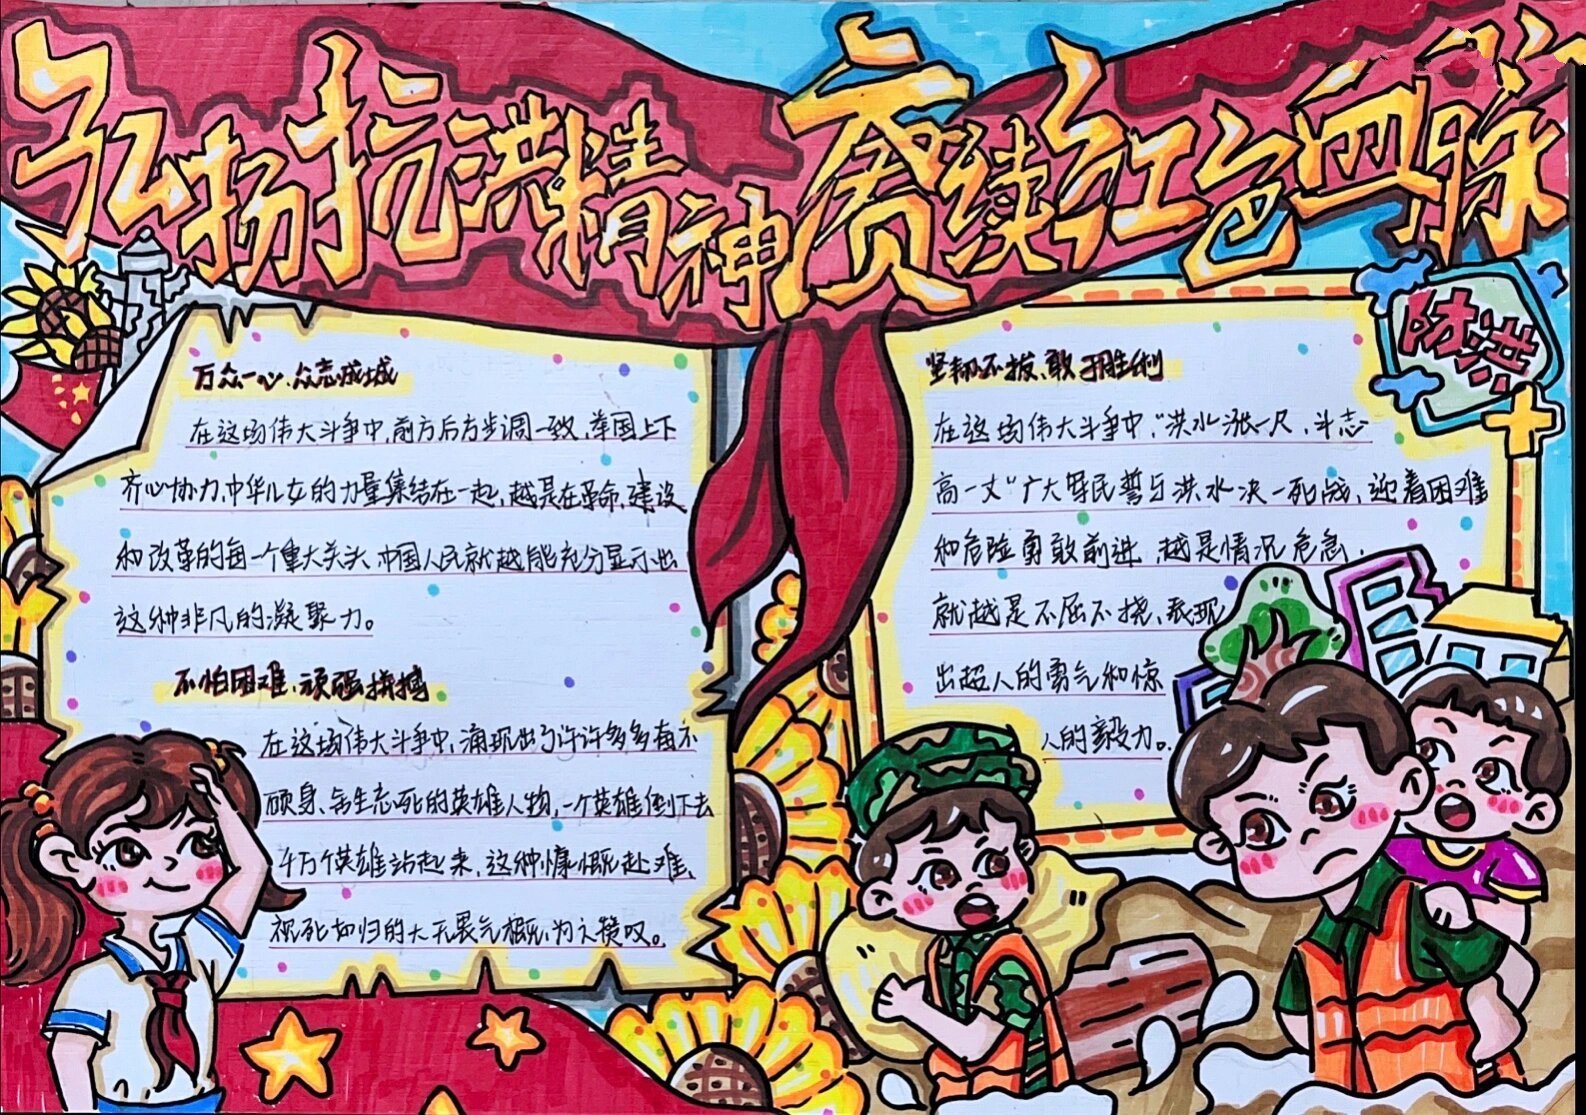 弘扬抗洪精神 赓续红色血脉
防洪
万众一心、众志成城
在这场伟大斗争中,前方后方步调一致,举国上下
齐心协力,中华儿女的力量集结在一起,越是在革命、建设
和改革的每一个重大关头,中国人民就越能充分显示出
这种非凡的凝聚力。
不怕困难、顽强拼搏
在这场伟大斗争中,涌现出了许许多多奋不
顾身、舍生忘死的英雄人物,一个英雄倒下去
千万个英雄站起来,这种慷慨赴难、
视死如归的大无畏气概,为人赞叹。
坚韧不拔、敢于胜利
在这场伟大斗争中,“洪水涨一尺,斗志
高一丈”广大军民誓与洪水决一死战,迎着困难
和危险勇敢前进,越是情况危急,
就越是不屈不挠、表现
出超人的勇气和惊
人的毅力。